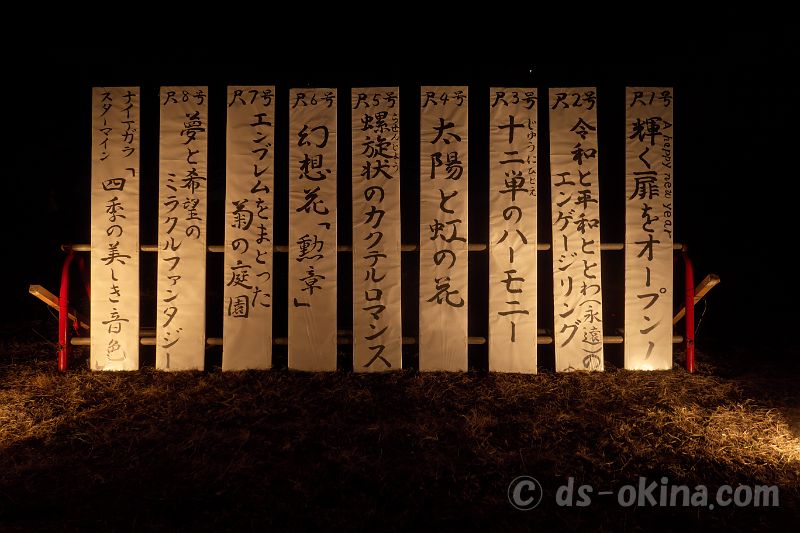 尺1号
A happy new year
輝く扉をオープン!
尺2号
令和と平和ととわ(永遠)の
エンゲージリング
尺3号
じゅうにひとえ
十二単のハーモニー
尺4号
太陽と虹の花
尺5号
らせんじょう
螺旋状のカクテルロマンス
尺6号
幻想花「勲章」
尺7号
エンブレムをまどった
菊の庭園
尺8号
夢と希望の
ミラクルファンタジー
ナイアガラ
スターマイン
「四季の美しき音色」
© ds-okina.com